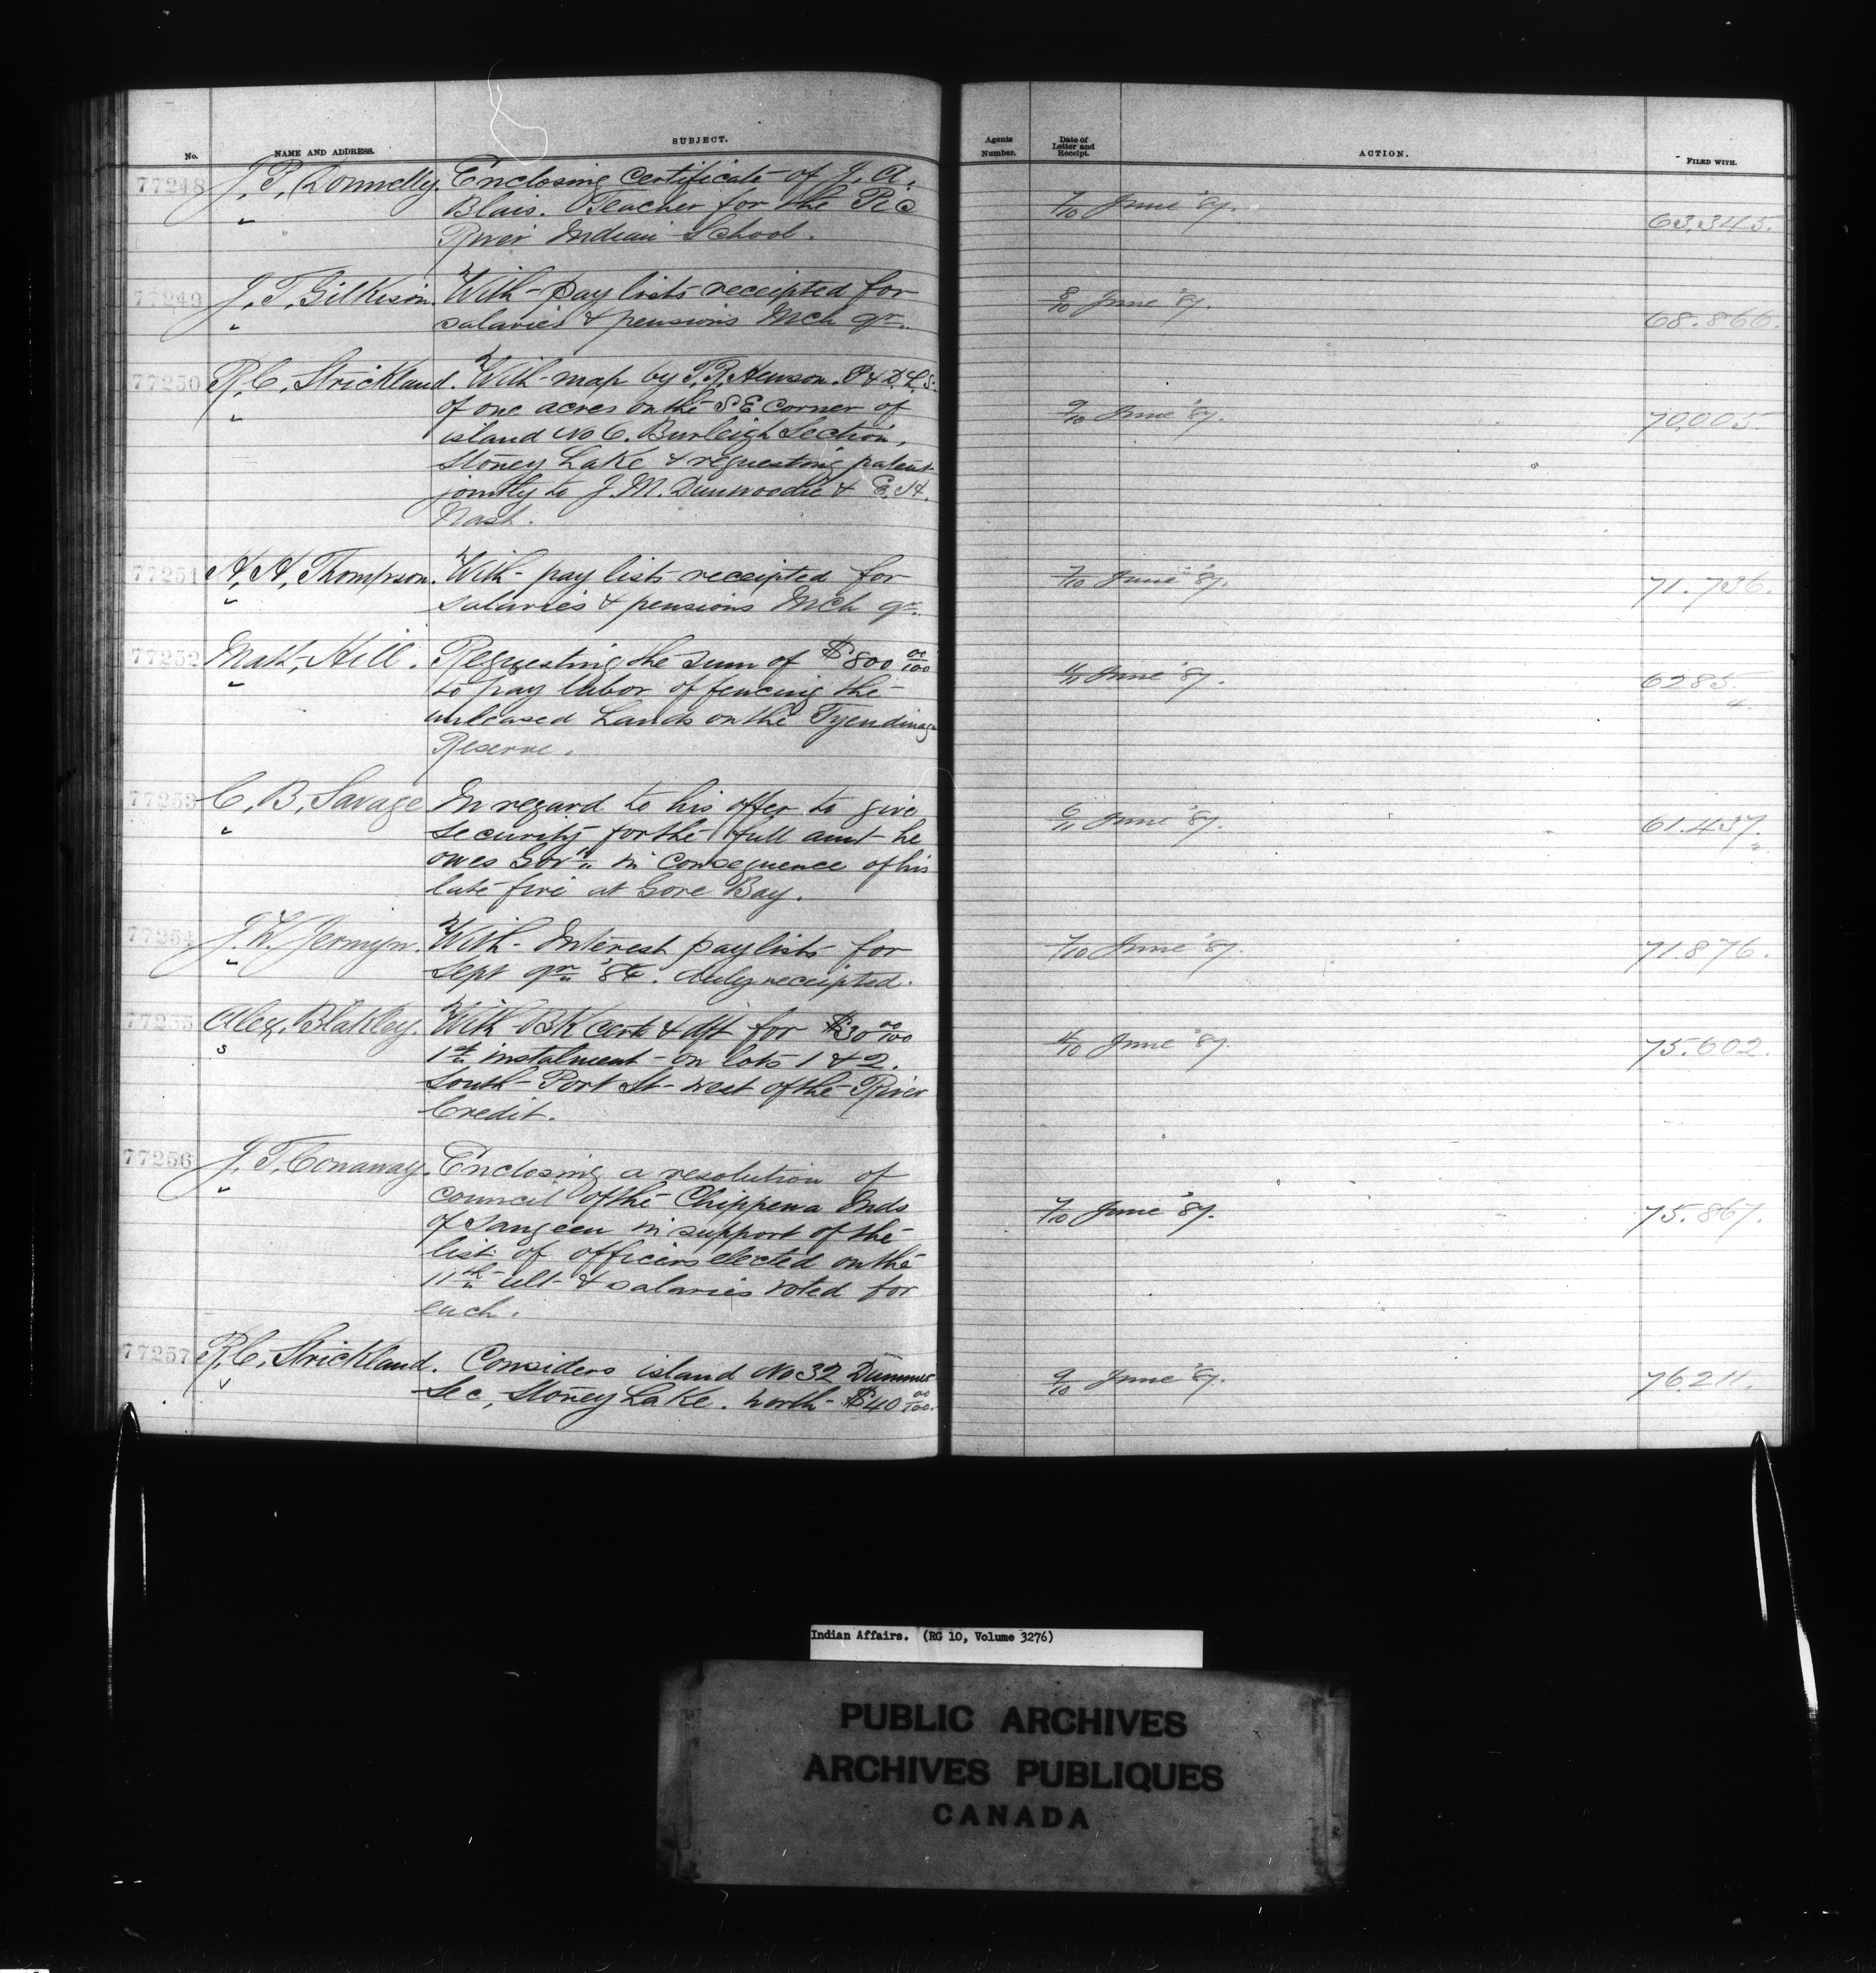 No.
NAME AND ADDRESS.
SUBJECT.
Agents Number.
Date of Letter and Receipt.
ACTION.
FILED WITH.
77248 J. P. Donnelly. Enclosing certificate of J. A. 
Blais. Teacher for the Pic 7/10 June '87. 63,345.
River Indian School.
77249 J. T. Gilkison. With pay lists receipted for 8/10 June '87.
salaries & pensions Mch qr. 68.866.
77250 R. C. Strickland. With map by T. R. Hewson. P & D. L. S.
of one acres on the S E corner of 9/10 June '87. 70,005.
island No 6. Burleigh Section,
Stoney Lake & requesting patent
jointly to J. M. Dunwoodie & E. H.
Nash.
77251 H. H. Thompson. With pay lists receipted for 7/10 June '87. 71.736.
salaries & pensions Mch qr.
77252 Matt. Hill. Requesting the sum of $800 00/100
to pay labor of fencing the June '87. 6285.
unleased Lands on the Tyendinaga 4.
Reserve.
77253 C. B. Savage In regard to his offer to give
security for the full amt he 6/11 June '87. 61.437.
owes Govt. in consequence of his
late fire at Gore Bay.
77254 J. W. Jermyn. With Interest pay lists for 7/10 June '87. 71.876.
Sept qr '86. duly receipted.
77255 Alex. Blakley. With BK cert & dft for $30 00/100
1st instalment on lots 1 & 2. June '87. 75.602.
South Port St west of the River
Credit.
77256 J. T. Conaway. Enclosing a resolution of
council of the Chippewa Inds 7/10 June '87. 75.867.
of Saugeen in support of the
list of officers elected on the
11th ult & salaries voted for
each.
77257 R. C. Strickland. Considers island No 32 Dummer
Sec, Stoney Lake. worth $40 00/100. 9/10 June '87. 76,211.
Indian Affairs. (RG 10, Volume 3276)
PUBLIC ARCHIVES
ARCHIVES PUBLIQUES
CANADA